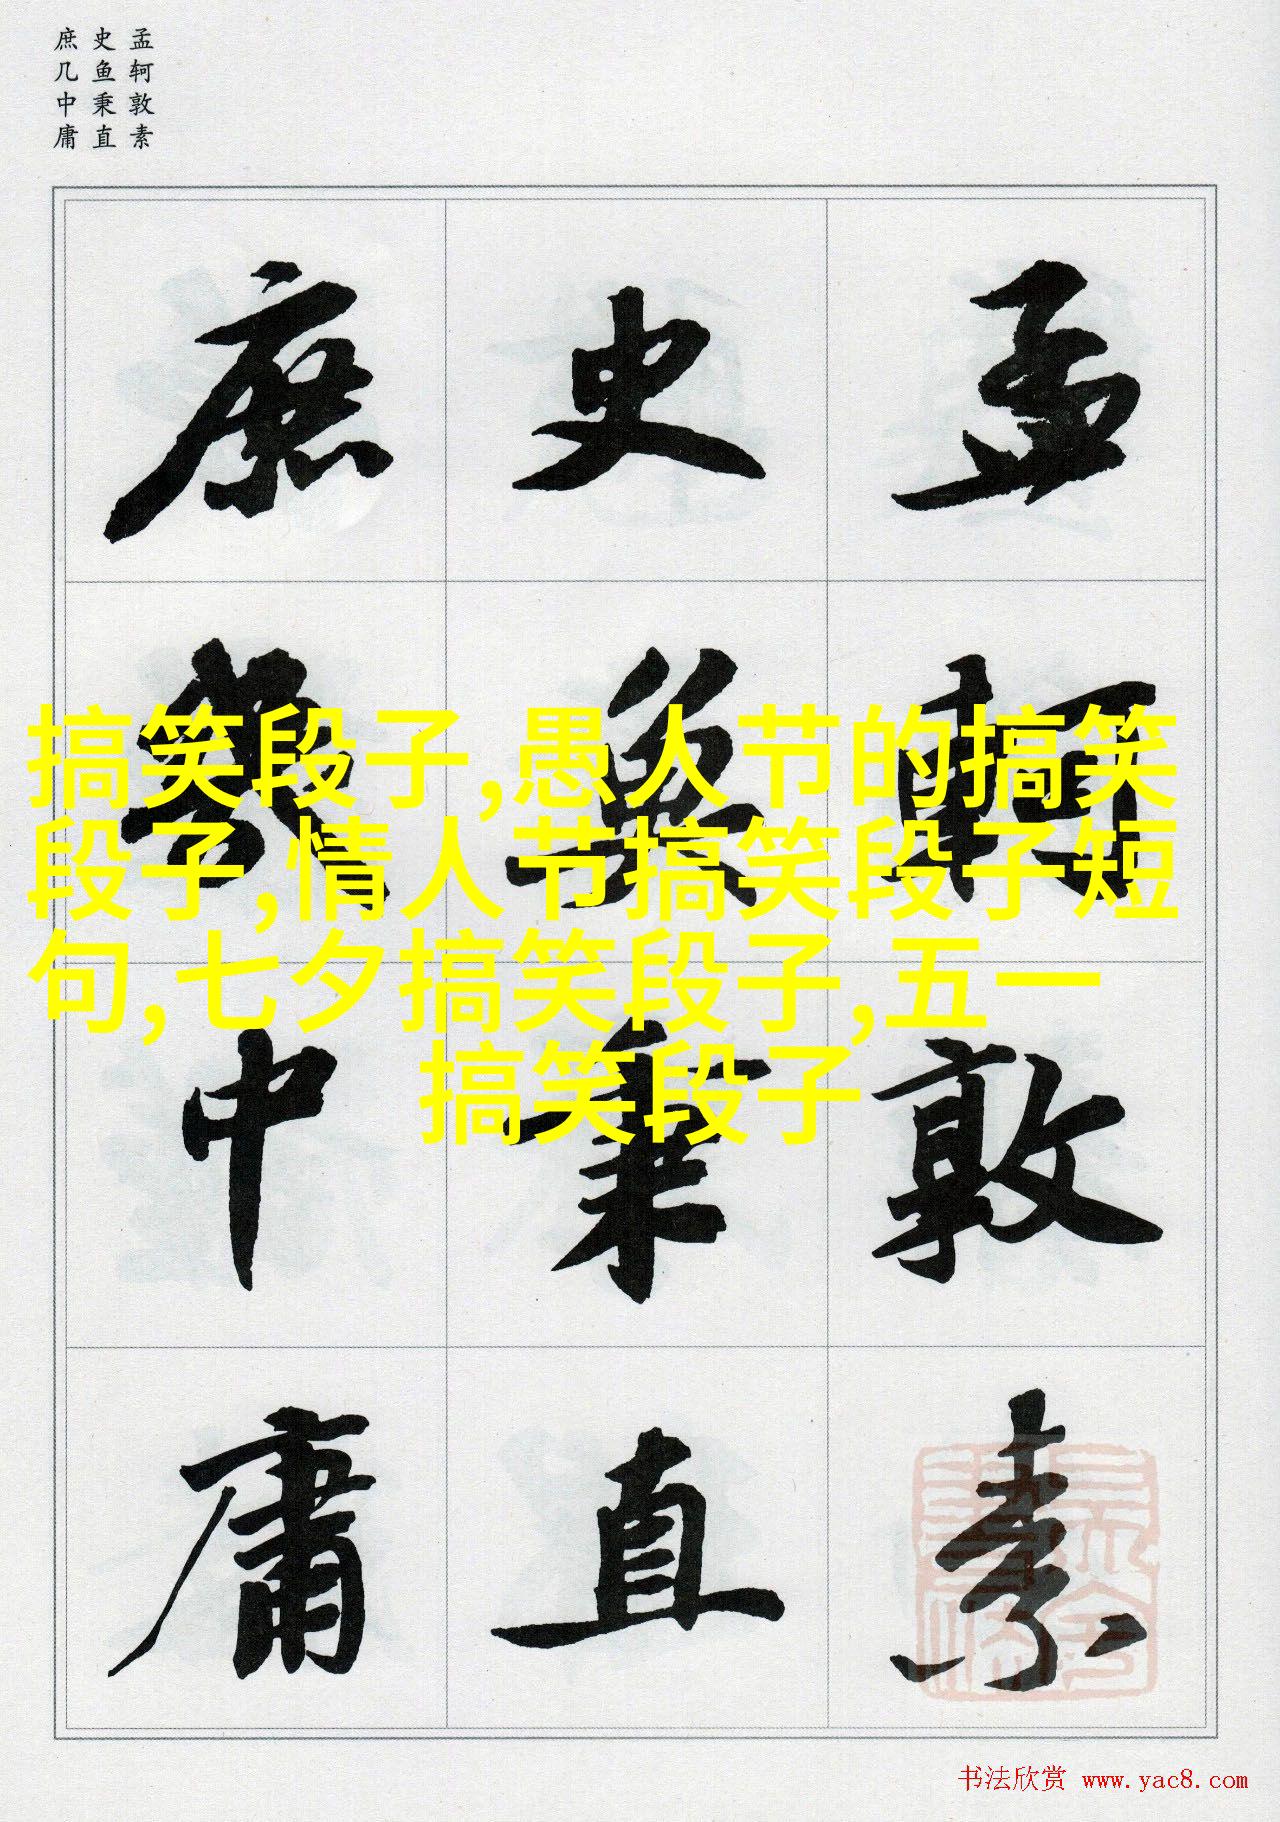 孟轲敦素
史鱼秉直
庶几中庸
孟軻敦素
史魚秉直
庶幾中庸
搞笑段子,愚人节的搞笑
段子,情人节搞笑段子短
句,七夕搞笑段子,五一
搞笑段子
书法欣赏 www.yac8.com